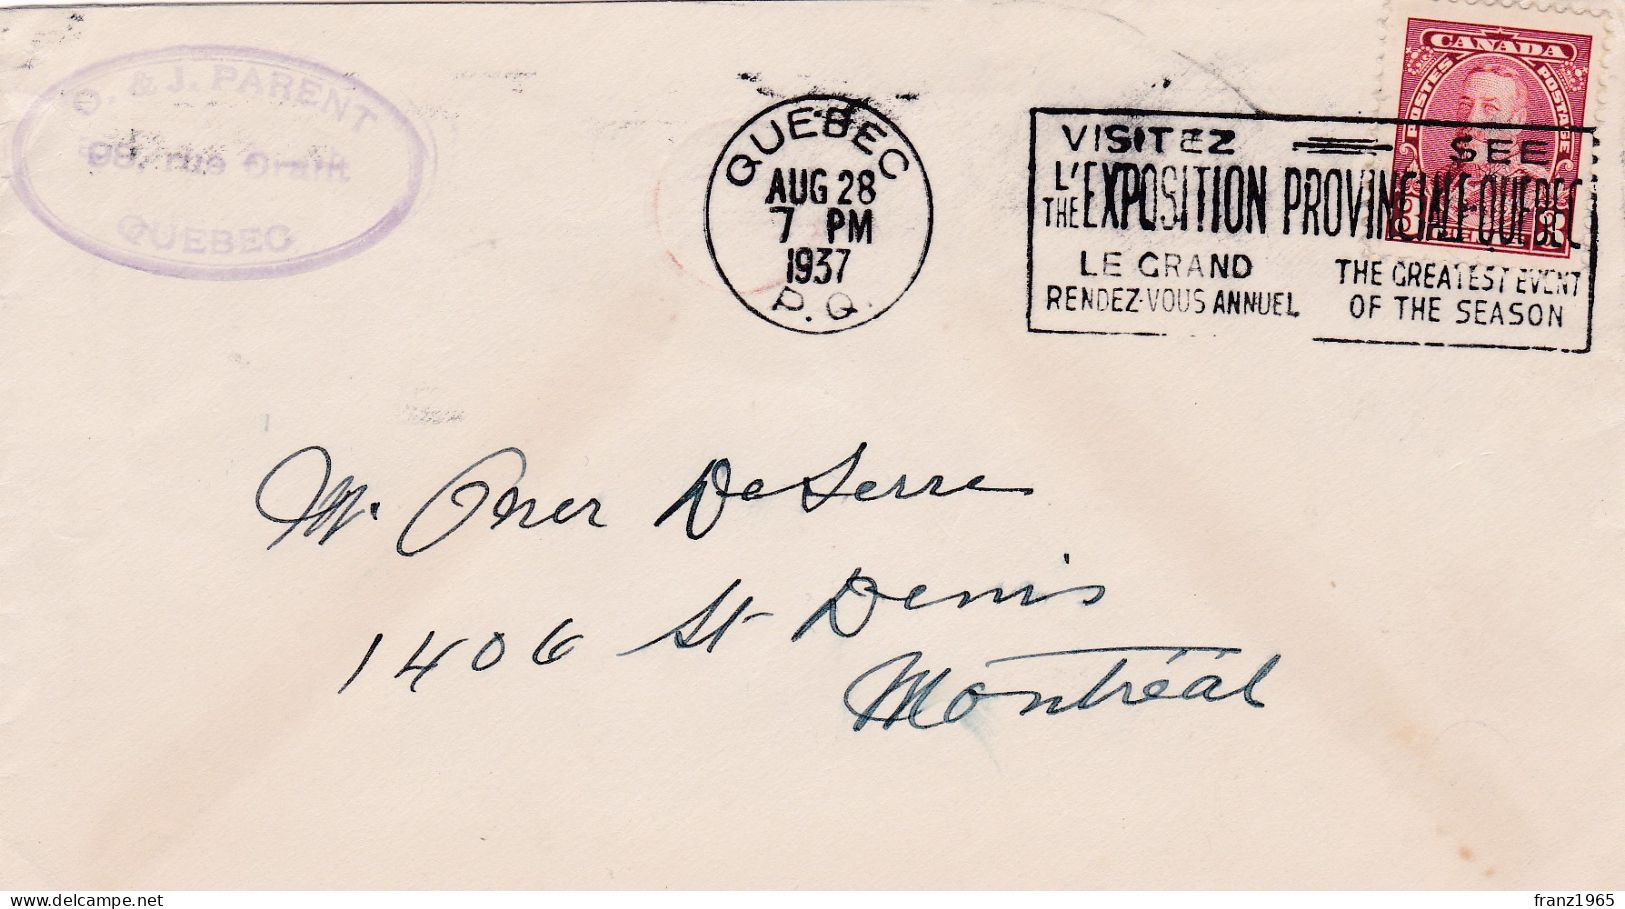 & J. PARENT
rue Grant
QUEBEC
QUEBEC
AUG 28
7 PM
1937
P.Q.
VISITEZ SEE
L'
THE EXPOSITION PROVINCIALE-QUEBEC
LE GRAND THE GREATEST EVENT
RENDEZ-VOUS ANNUEL OF THE SEASON
CANADA
POSTES POSTAGE
3 3
M. Omer DeSerre
1406 St Denis
Montréal
delcampe.net
franz1965